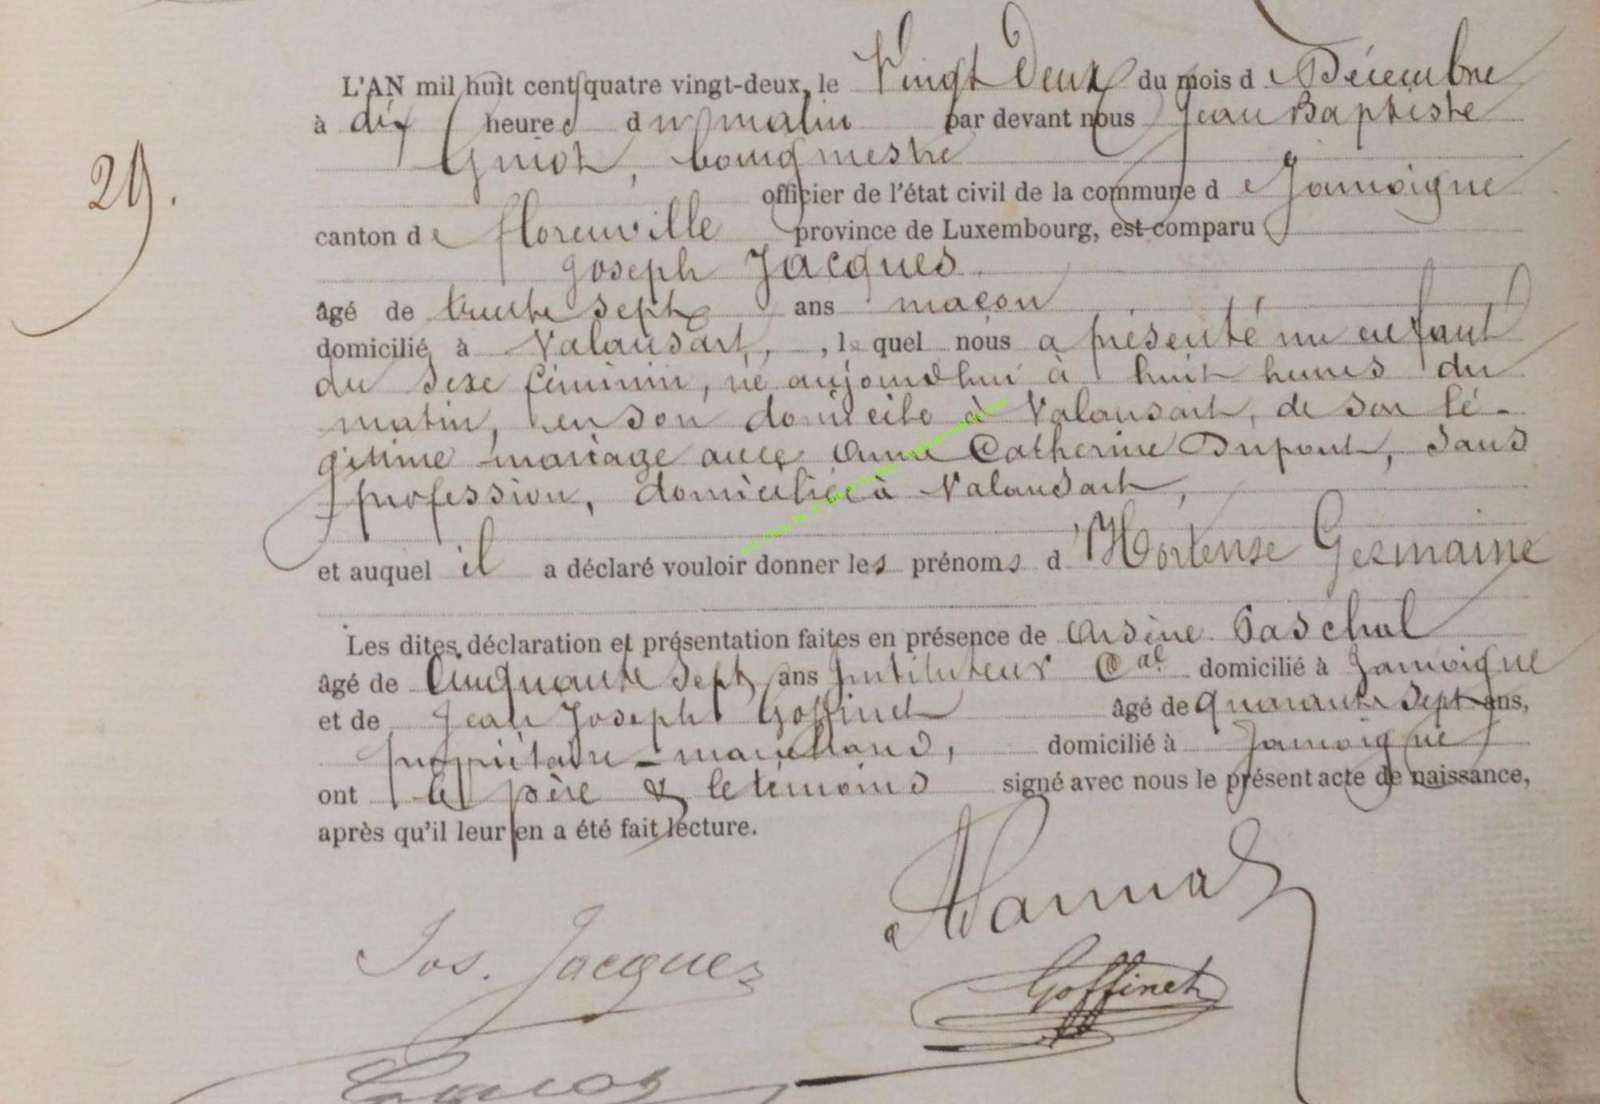 L'AN mil huit cent quatre vingt-deux, le Vingt Deux du mois d e Décembre
à dix heures du matin par devant nous Jean Baptiste
29. Guiot, bourgmestre
officier de l'état civil de la commune d e Jamoigne
canton de florenville province de Luxembourg, est comparu
Joseph Jacques.
âgé de trente sept ans maçon
domicilié à Valansart, , le quel nous a présenté un enfant
du sexe féminin, né aujourdhui à huit heures du
matin, en son domicile à Valansart, de son lé-
gitime mariage avec Anne Catherine Dupont, sans
profession, domiciliée à Valansart,
et auquel il a déclaré vouloir donner les prénoms d'Hortense Germaine
Les dites déclaration et présentation faites en présence de Arsène Paschal
âgé de Cinquante sept ans Instituteur Cal domicilié à Jamoigne
et de Jean Joseph Goffinet âgé de quarante sept ans,
propriétaire - marchand, domicilié à Jamoigne
ont le père & le témoins signé avec nous le présent acte de naissance,
après qu'il leur en a été fait lecture.
Jos. Jacques
Goffinet